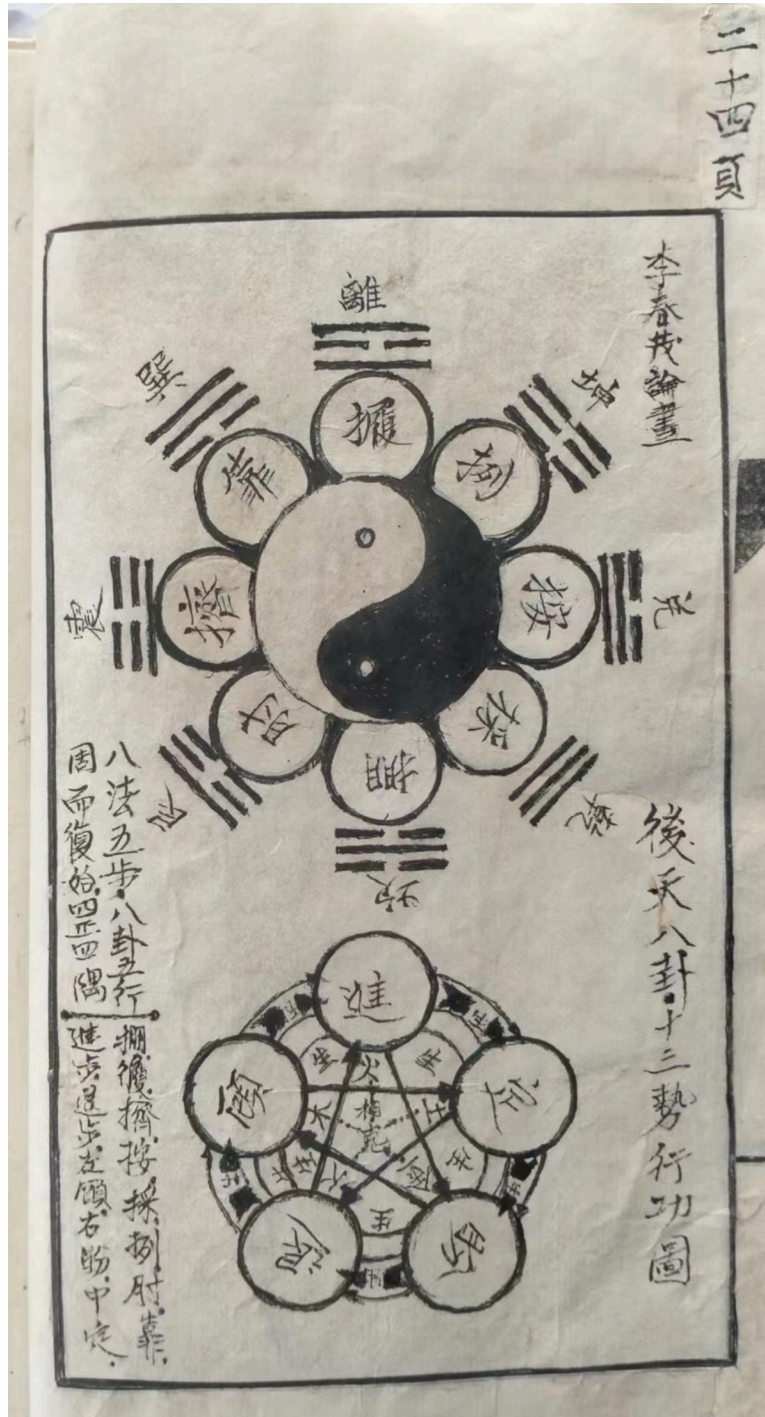 二十四頁
李春茂論畫
後天八卦·十三勢行功圖
離
坤
兌
乾
坎
艮
震
巽
擺
挒
按
採
掤
肘
擠
靠
進
定
盼
退
顧
火
土
金
水
木
相克
生
生
生
生
生
八法五步·八卦五行
周而復始·四正四隅
掤擺擠按·採挒肘靠·
進步退步左顧右盼中定·